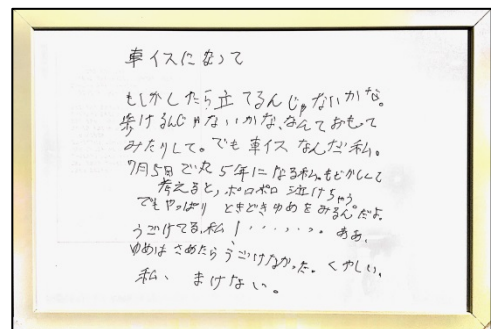 車イスになって
もしかしたら立てるんじゃないかな。
歩けるんじゃないかな、なんておもって
みたりして。でも車イスなんだ私。
7月5日で丸5年になる私。もどかしくて
考えると、ポロポロ泣けちゃう。
でもやっぱり ときどきゆめをみるんだよ。
うごけてる、私!・・・・・っ。ああ、
ゆめは さめたら うごけなかった。くやしい、
私、まけない。